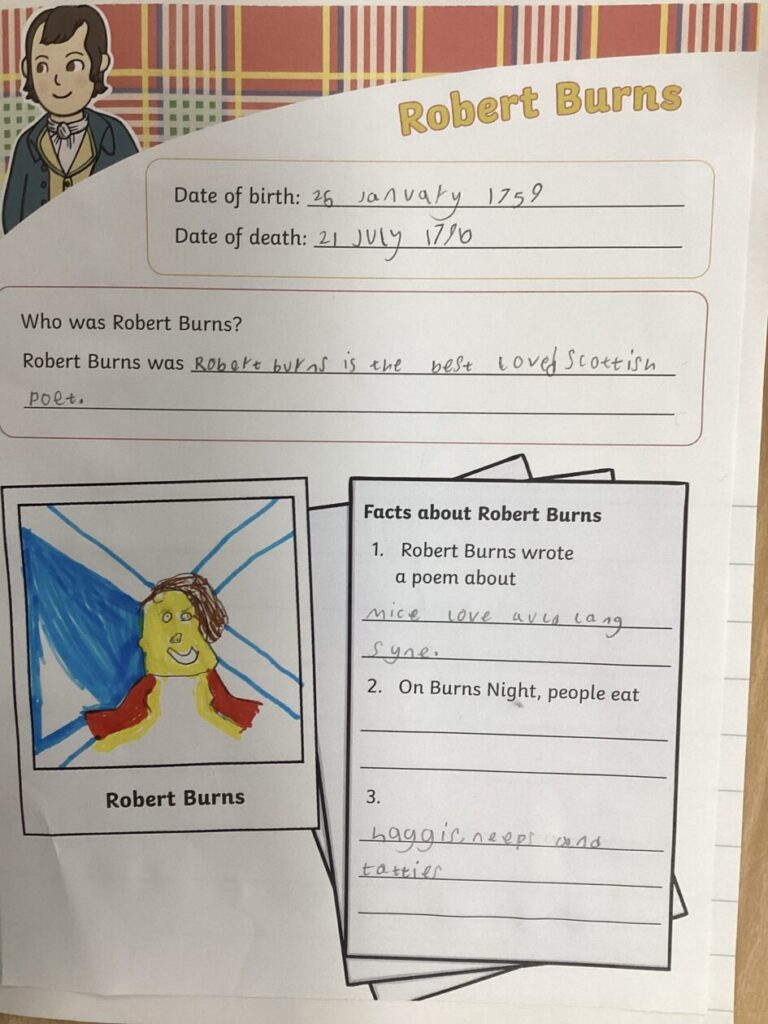 Robert Burns
Date of birth: 25 January 1759
Date of death: 21 July 1796
Who was Robert Burns?
Robert Burns was Robert burns is the best Loved Scottish
poet.
Robert Burns
Facts about Robert Burns
1. Robert Burns wrote
a poem about
mice love auld lang
syne.
2. On Burns Night, people eat
3.
haggis, neeps and
tatties